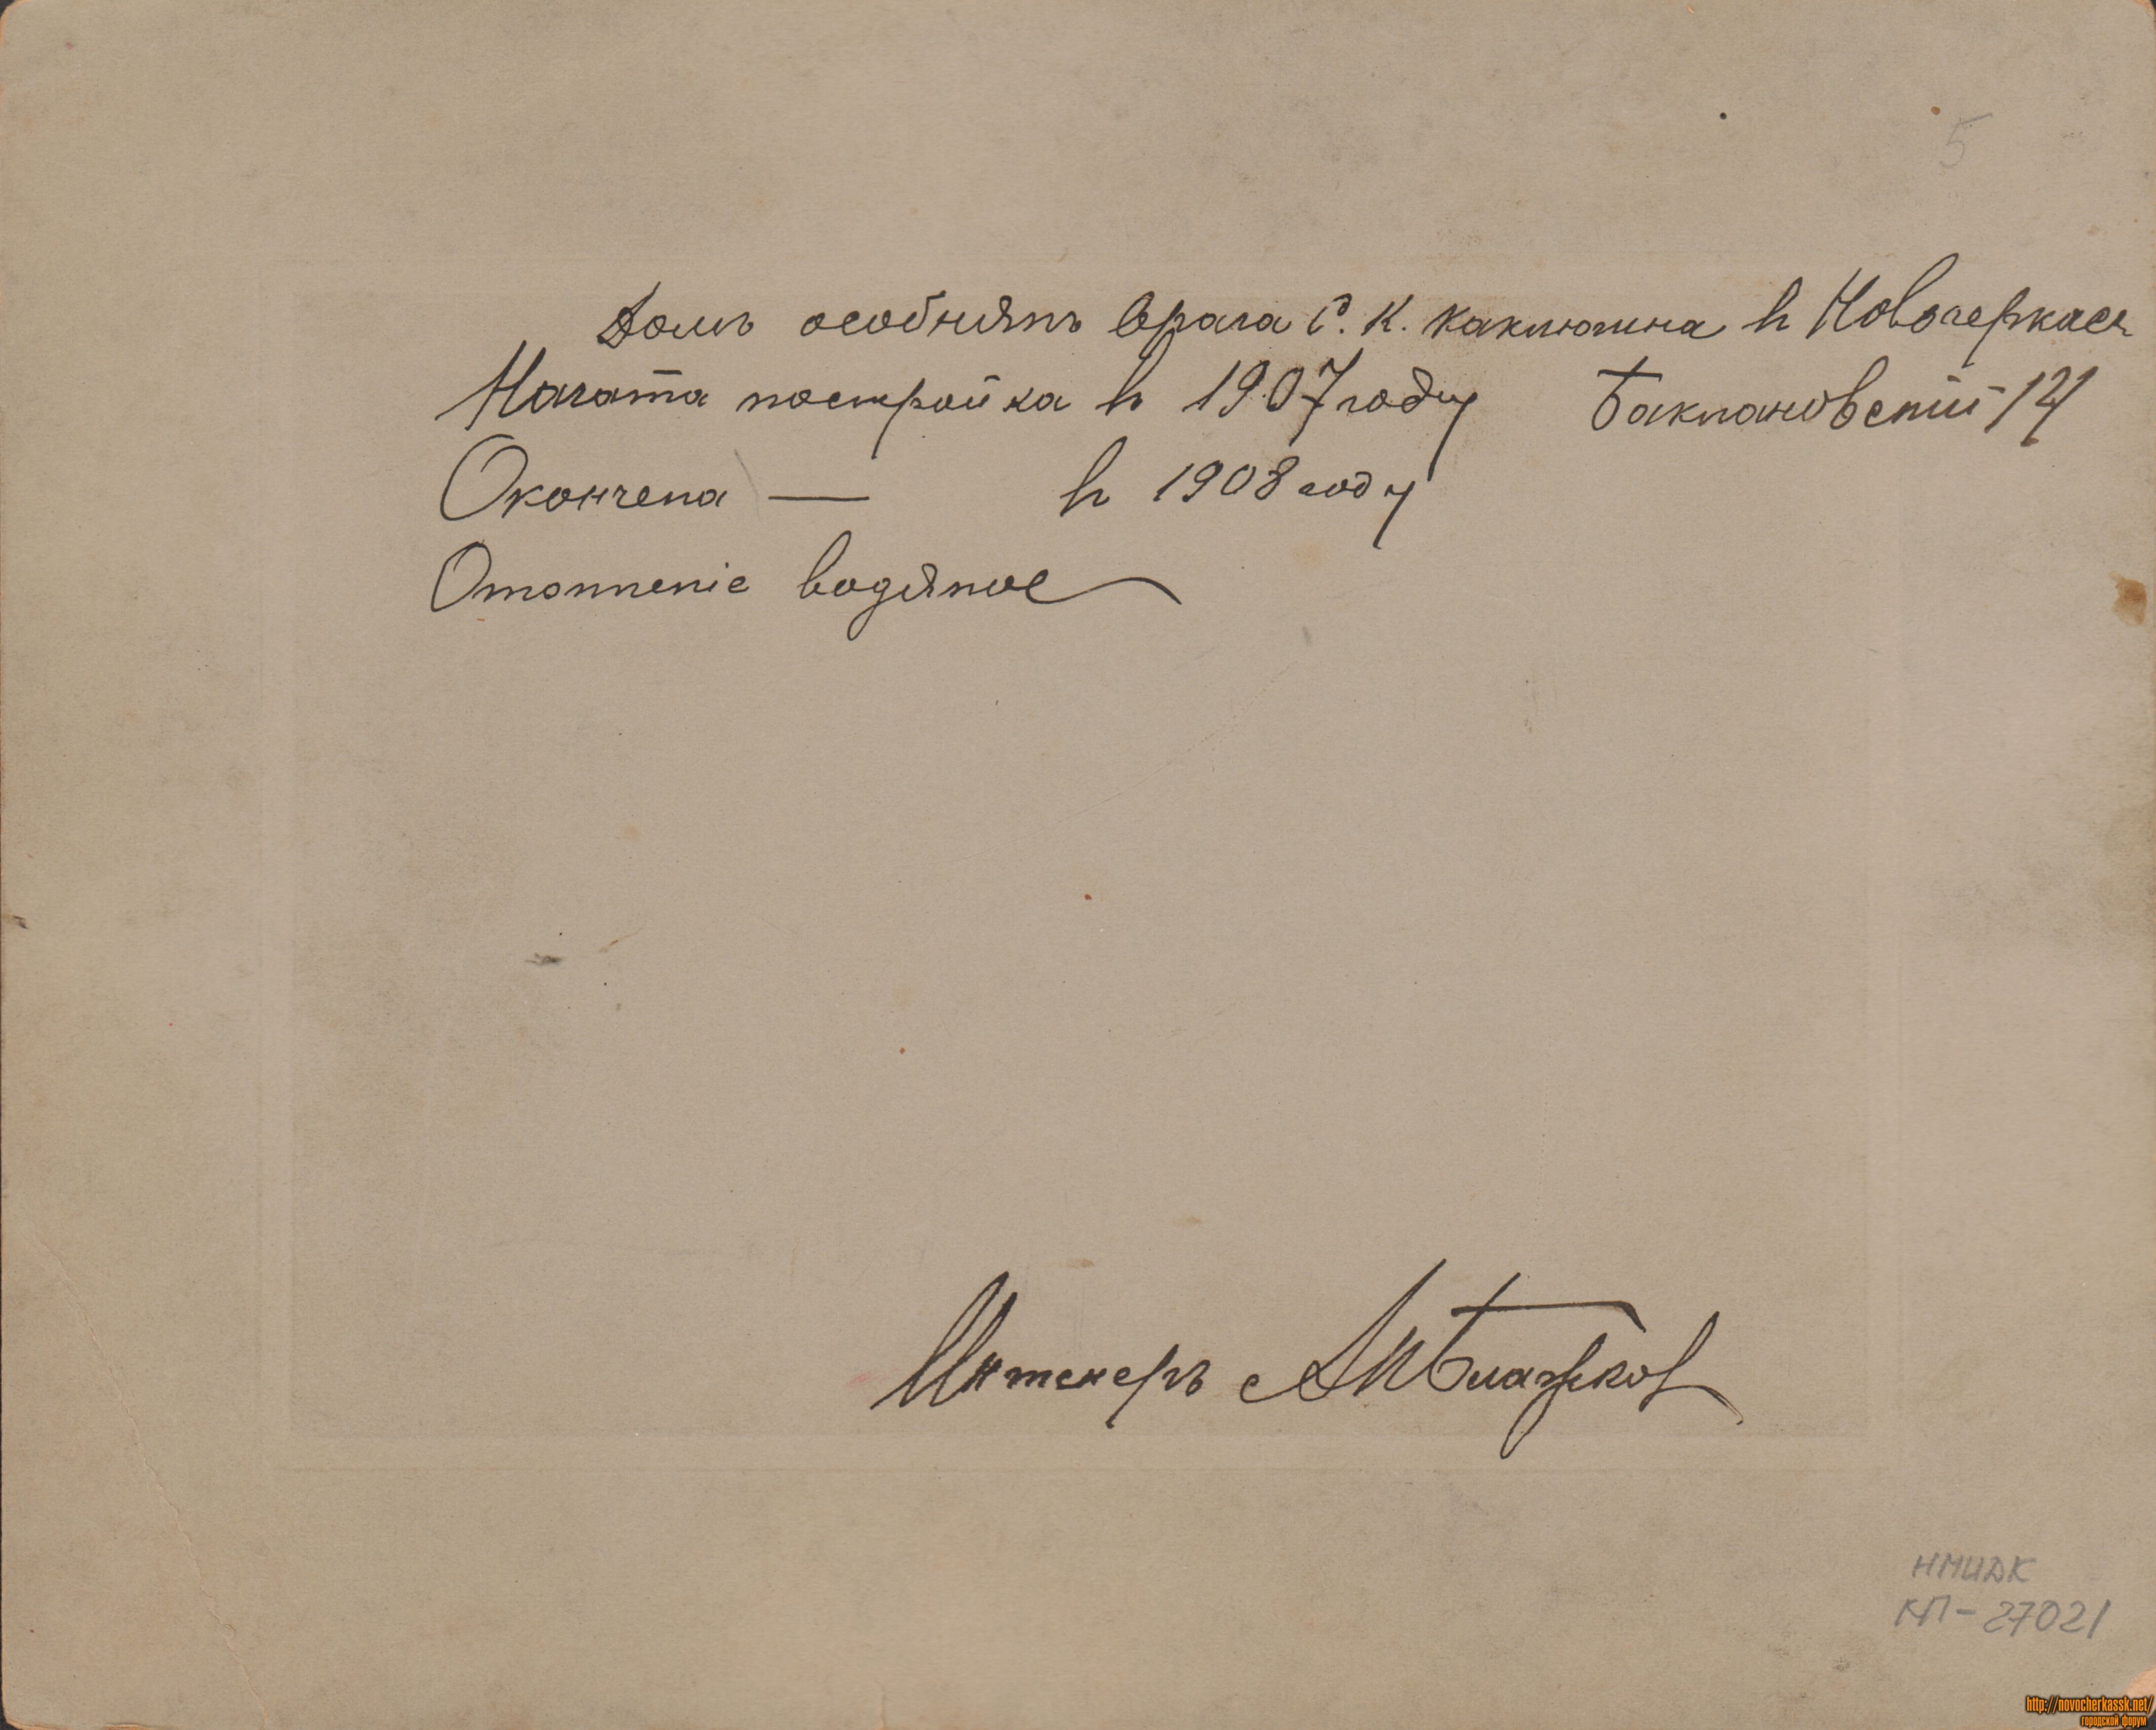 5
Домъ особнякъ врача С. К. Каклюгина в Новочеркасс
Начата постройка в 1907 году Баклановский 121
Окончена — в 1908 году
Отопление водяное
Инженеръ А Блажков
НМИДК
КП-27021
http://novocherkassk.net/
городской форум